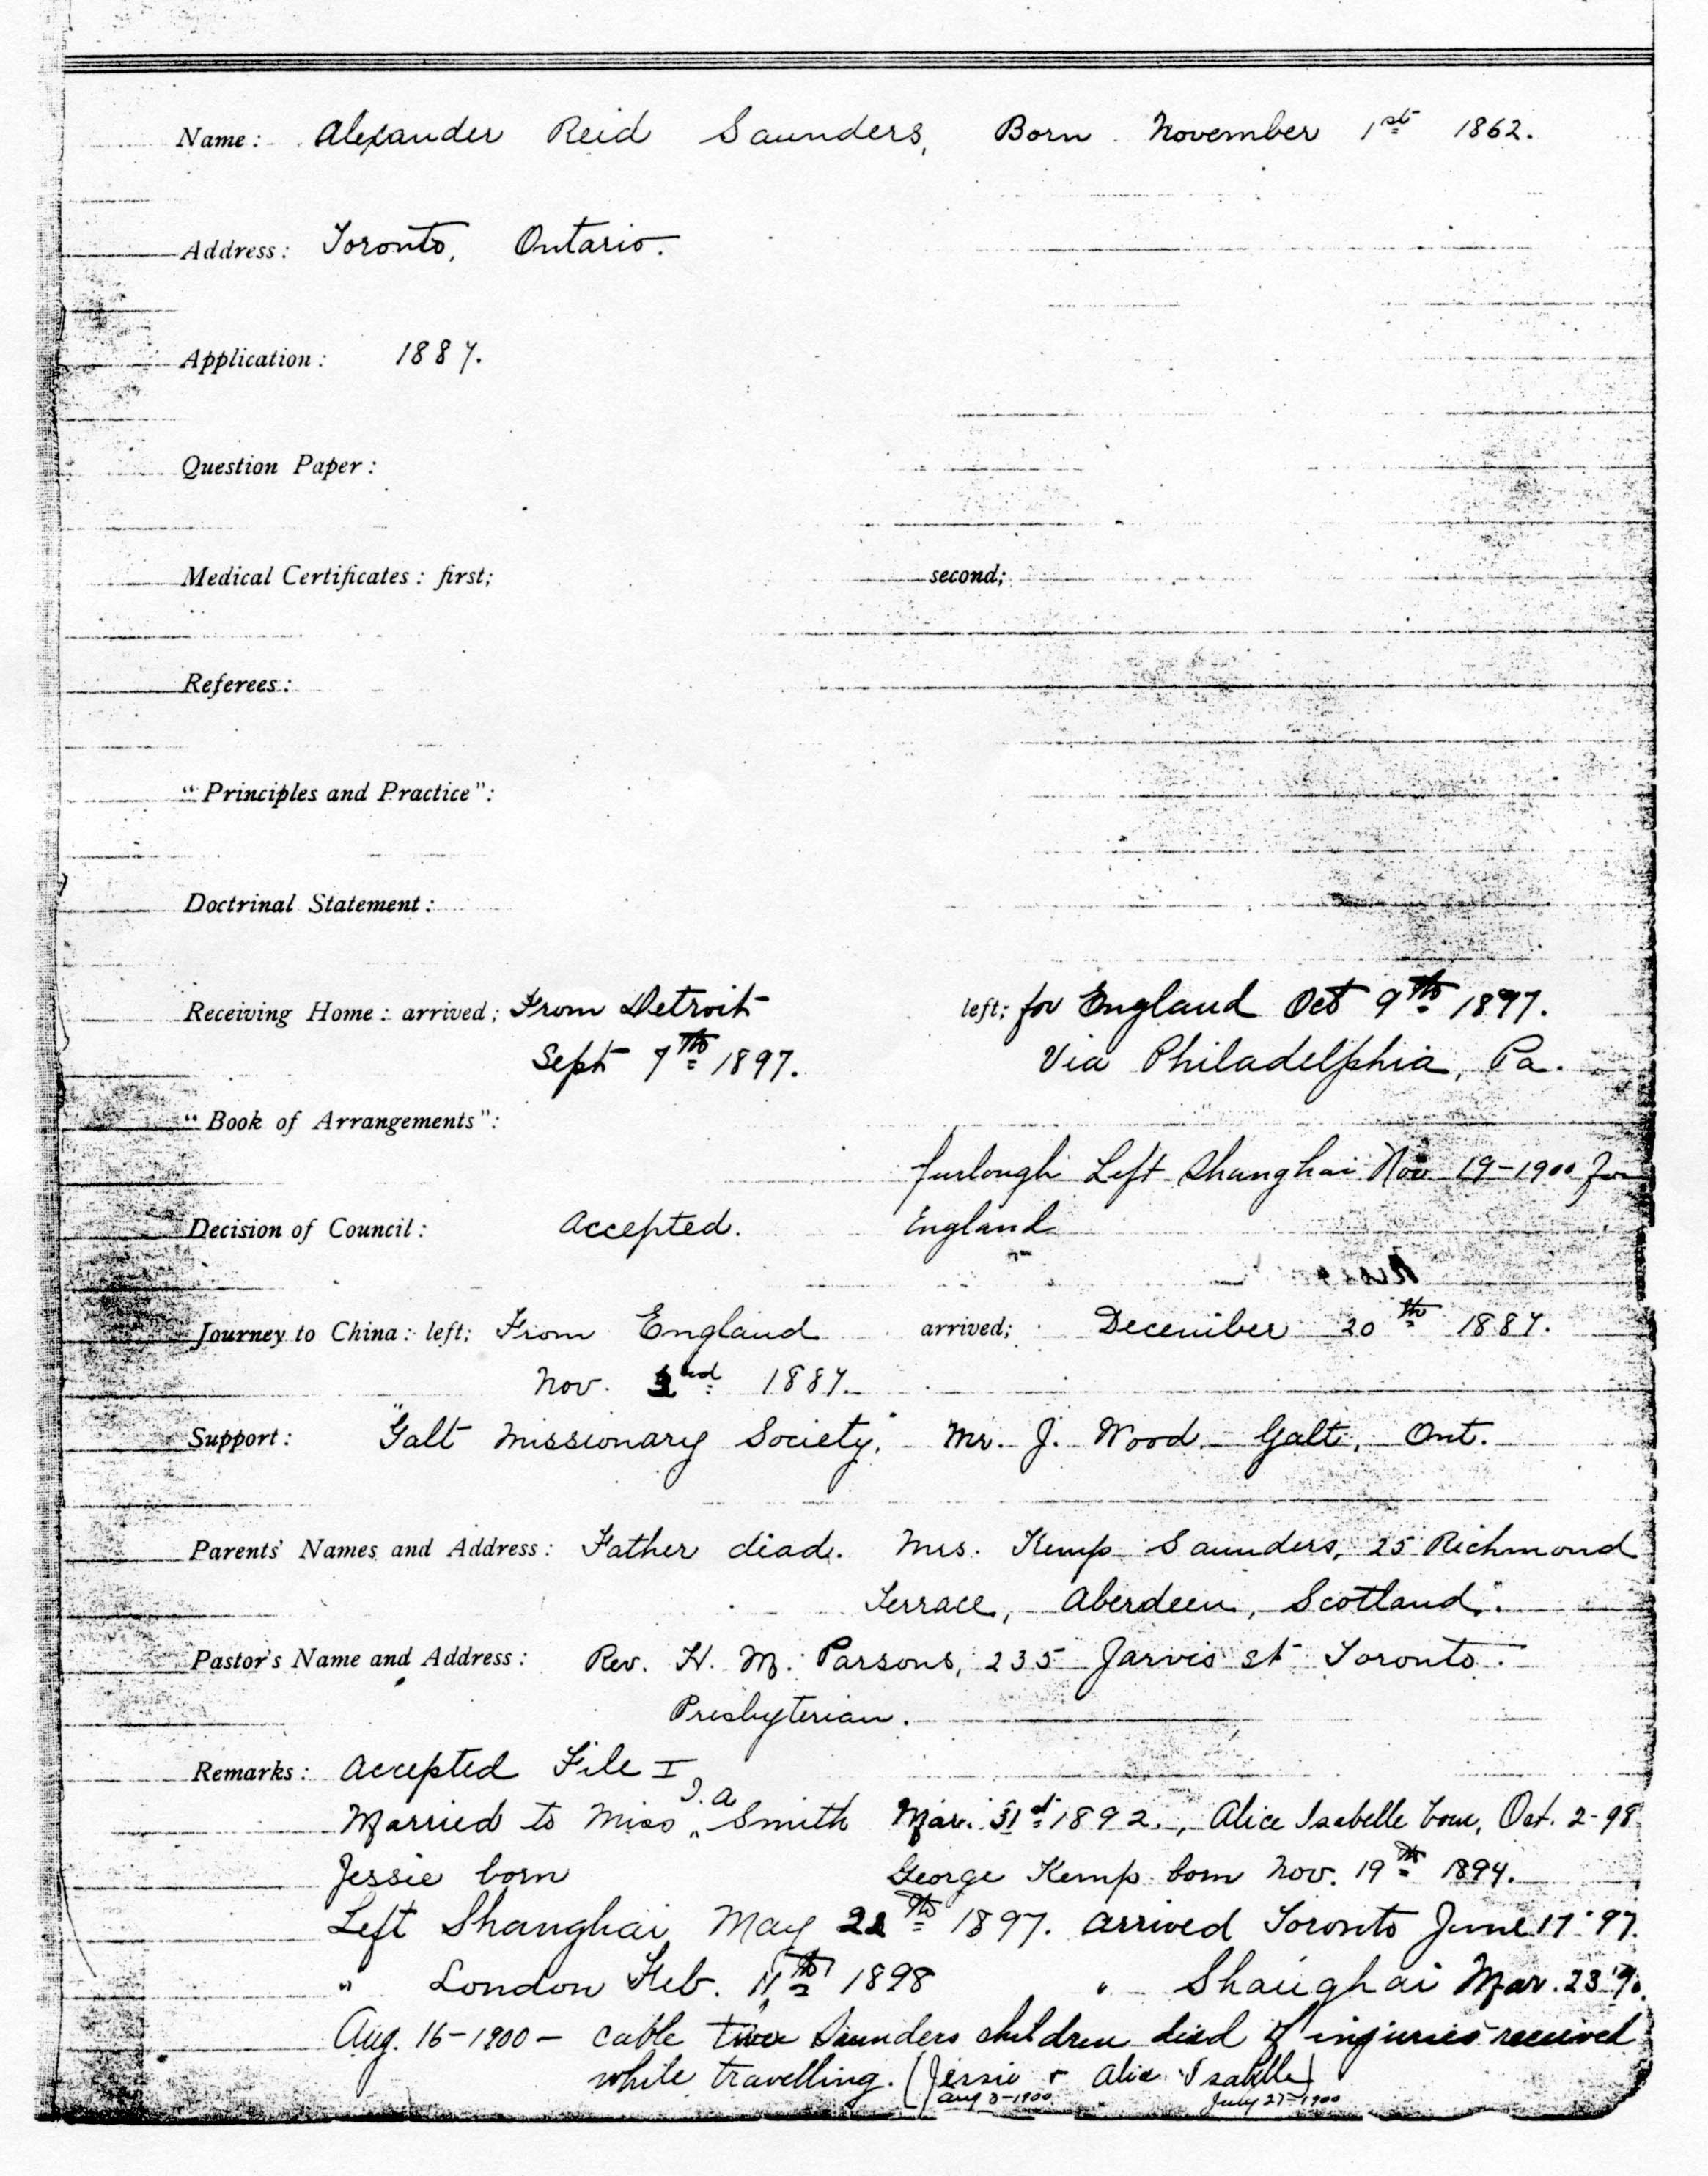 Name: Alexander Reid Saunders, Born November 1st 1862.
Address: Toronto, Ontario.
Application: 1887.
Question Paper:
Medical Certificates: first; second;
Referees:
"Principles and Practice":
Doctrinal Statement:
Receiving Home: arrived; From Detroit left; for England Oct 9th 1897.
Sept 7th 1897. Via Philadelphia, Pa.
"Book of Arrangements":
furlough Left Shanghai Nov 19-1900 for
Decision of Council: Accepted. England
Journey to China: left; From England arrived; December 20th 1887.
Nov. 1887.
Support: "Galt Missionary Society," Mr. J. Wood. Galt, Ont.
Parents' Names and Address: Father dead. Mrs. Kemp Saunders, 25 Richmond
Terrace, Aberdeen, Scotland.
Pastor's Name and Address: Rev. H. M. Parsons, 235 Jarvis st Toronto.
Presbyterian.
Remarks: Accepted File I
Married to Miss I. A. Smith Mar. 31st 1892., Alice Isabelle born, Oct. 2-98
Jessie born George Kemp born Nov. 19th 1894.
Left Shanghai May 22th 1897. arrived Toronto June 17 '97.
" London Feb. 11th 1898 " Shanghai Mar. 23
Aug. 16-1900 - cable two Saunders children died of injuries received
while travelling. (Jessie + Alice Isabelle)
Aug 3-1900 July 27-1900